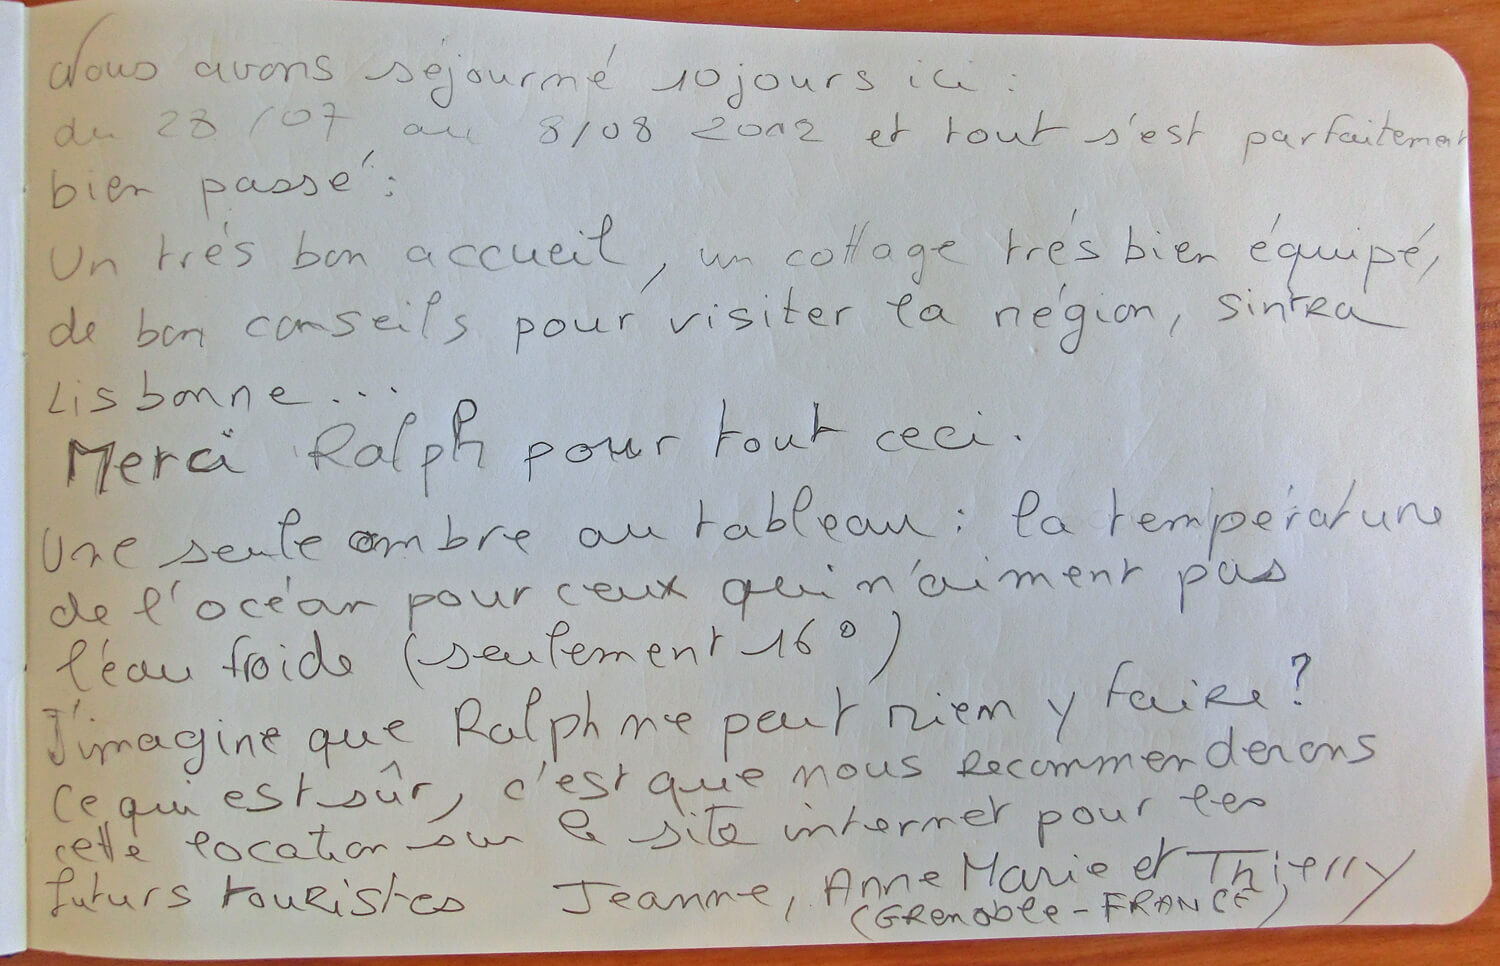 Nous avons séjourné 10 jours ici :
du 28/07 au 8/08 2012 et tout s'est parfaitement
bien passé :
Un trés bon accueil, un cottage trés bien équipé,
de bon conseils pour visiter la région, Sintra
Lisbonne...
Merci Ralph pour tout ceci.
Une seule ombre au tableau : la température
de l'océan pour ceux qui n'aiment pas
l'eau froide (seulement 16°)
J'imagine que Ralph ne peut rien y faire ?
Ce qui est sûr, c'est que nous recommenderons
cette location sur le site internet pour les
futurs touristes Jeanne, Anne Marie et Thierry
(GRenoble - FRANCE)